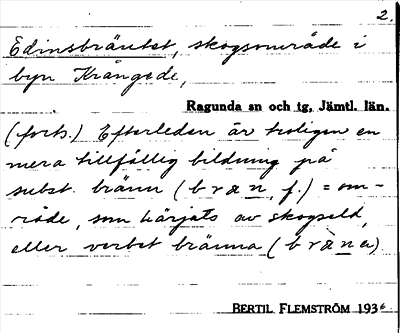 2.
Edinsbräntet, skogsområde i
byn Krångede,
Ragunda sn och tg, Jämtl. län.
(forts.) Efterleden är troligen en
mera tillfällig bildning på
subst. bränn (bræn, f.) = om-
råde, som härjats av skogseld,
eller verbet bränna (bræna).
BERTIL FLEMSTRÖM 1936